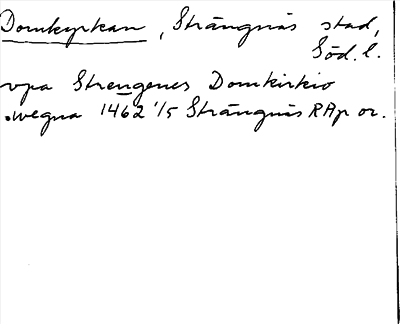 Domkyrkan, Strängnäs stad,
Söd. l.
vpa Strengenes Domkirkio
wegna 1462 1/5 Strängnäs RAp or.